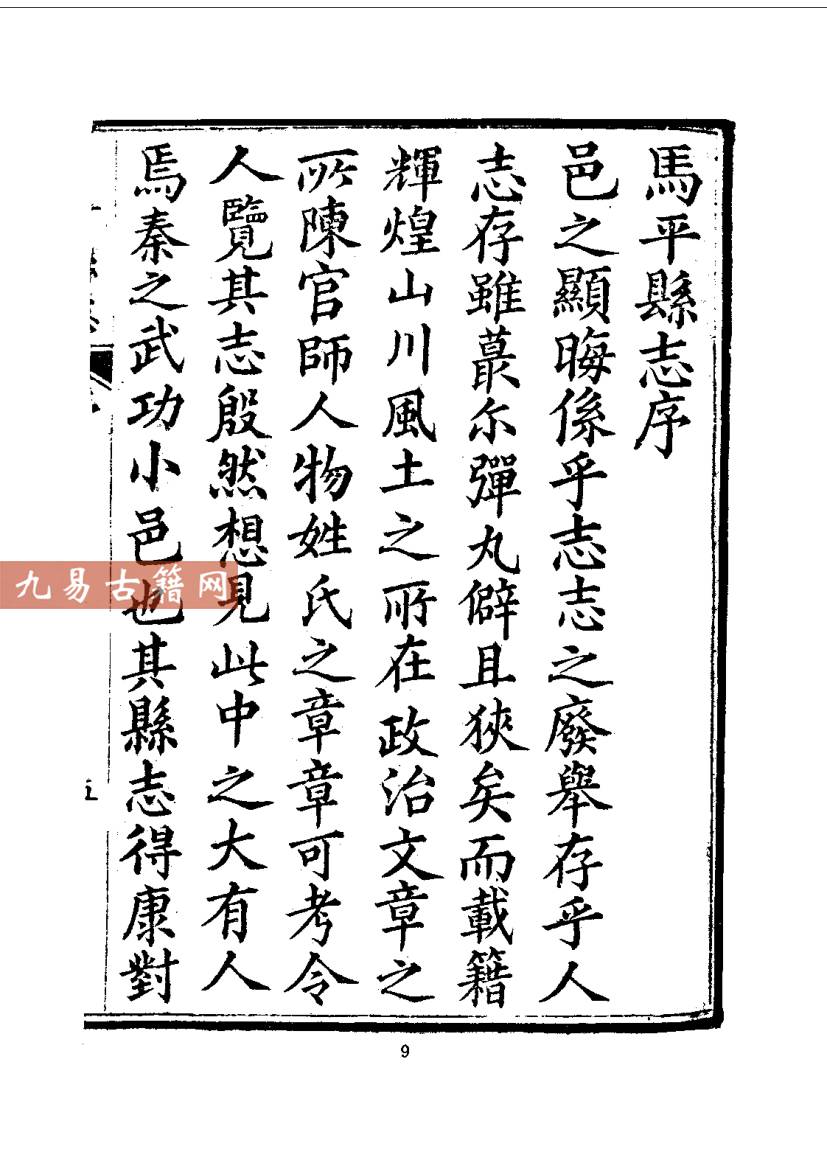 馬平縣志序
邑之顯晦係乎志志之廢舉存乎人
志存雖蕞尔彈丸僻且狹矣而載籍
輝煌山川風土之所在政治文章之
所陳官師人物姓氏之章章可考令
人覽其志殷然想見此中之大有人
焉秦之武功小邑也其縣志得康對
五
九易古籍网
9